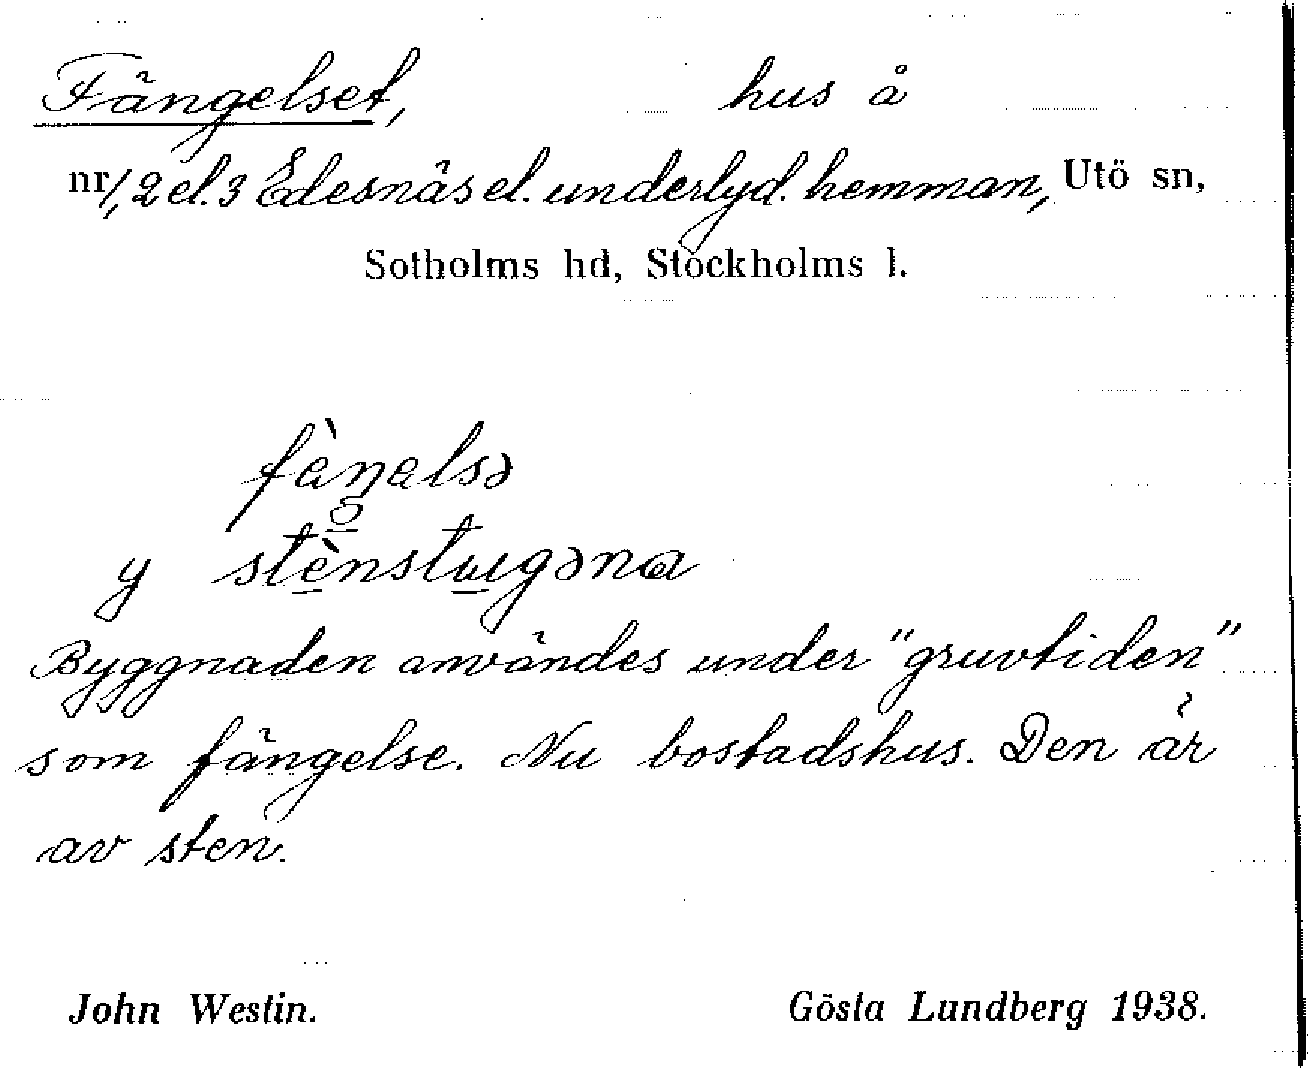 Fängelset, hus å
nr 1, 2 el. 3 Edesnäs el. underlyd. hemman, Utö sn,
Sotholms hd, Stockholms l.
fàŋalsə
y stènstugəna
Byggnaden användes under "gruvtiden"
som fängelse. Nu bostadshus. Den är
av sten.
John Westin. Gösta Lundberg 1938.